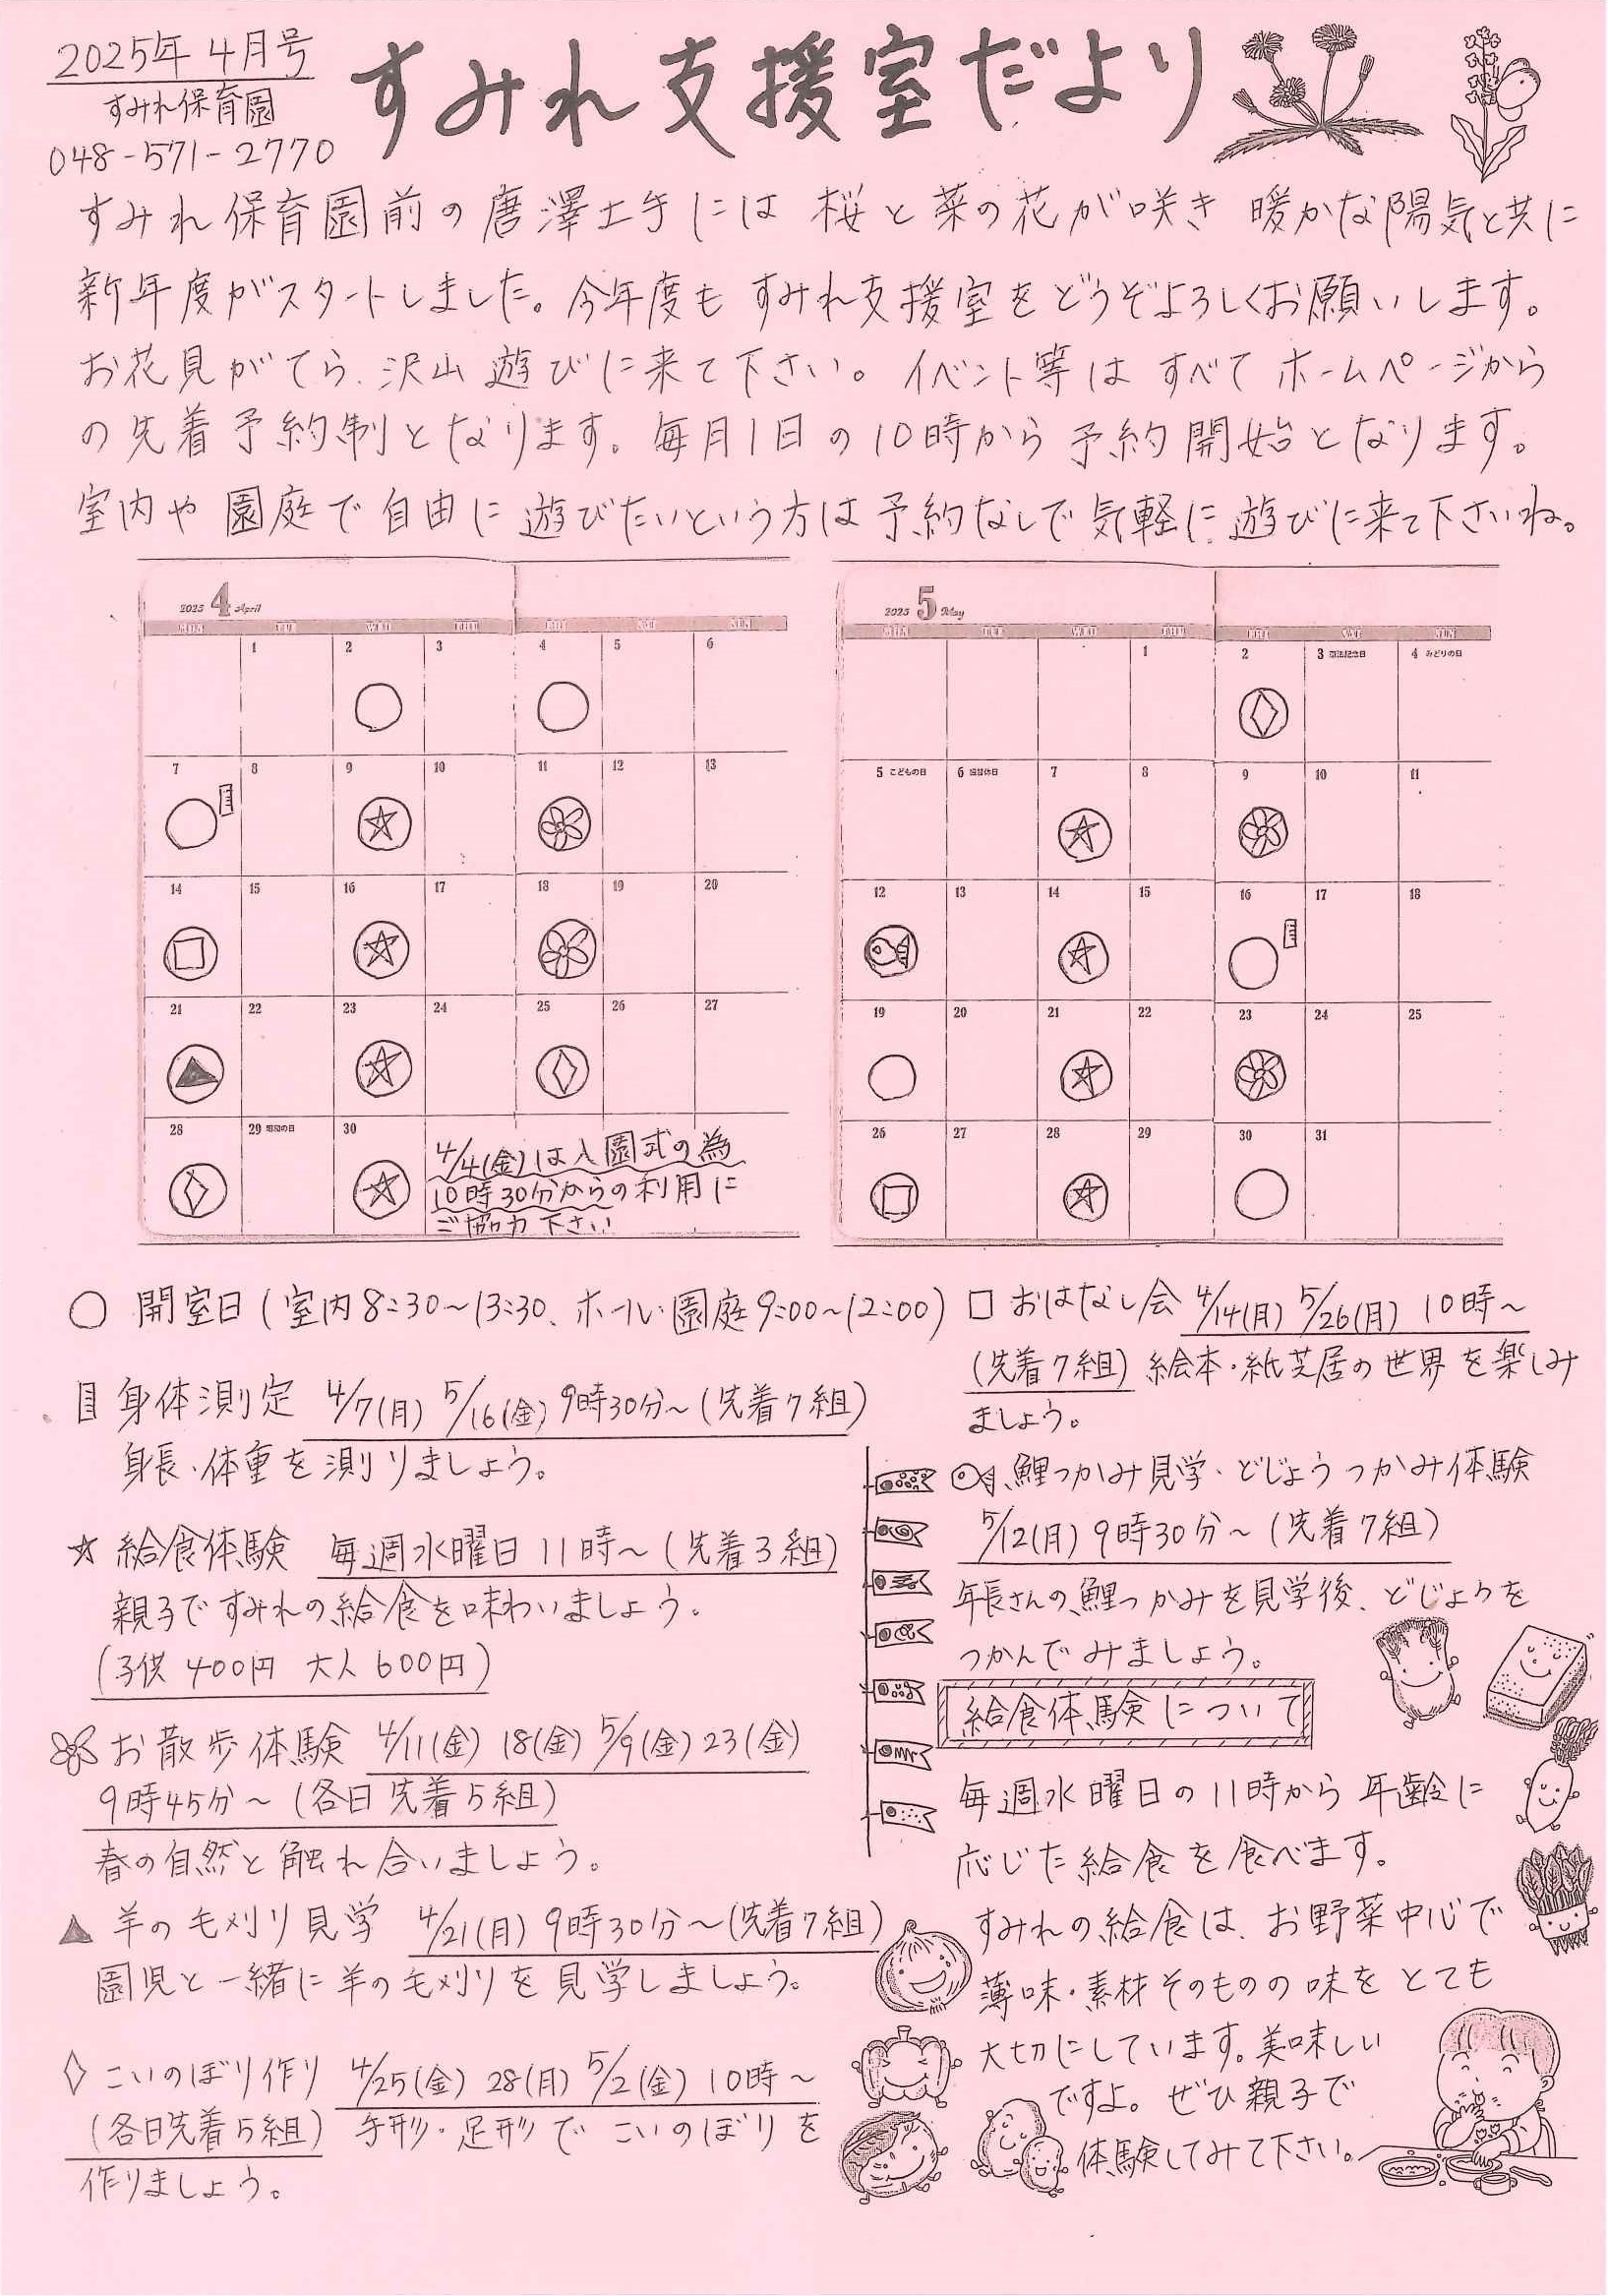 2025年 4月号
すみれ保育園
048-571-2770
すみれ支援室だより
すみれ保育園前の唐澤土手には 桜と菜の花が咲き 暖かな陽気と共に
新年度がスタートしました。今年度も すみれ支援室をどうぞよろしくお願いします。
お花見がてら、沢山 遊びに来て下さい。イベント等は すべて ホームページから
の先着予約制となります。毎月1日の10時から予約開始となります。
室内や園庭で自由に遊びたいという方は予約なしで気軽に遊びに来て下さいね。
2025 4 April
MON TUE WED THU FRI SAT SUN
1 2 3 4 5 6
7 8 9 10 11 12 13
14 15 16 17 18 19 20
21 22 23 24 25 26 27
28 29 昭和の日 30
4/4(金)は入園式の為
10時30分からの利用に
ご協力下さい
2025 5 May
MON TUE WED THU FRI SAT SUN
1 2 3 憲法記念日 4 みどりの日
5 こどもの日 6 振替休日 7 8 9 10 11
12 13 14 15 16 17 18
19 20 21 22 23 24 25
26 27 28 29 30 31
○ 開室日(室内8:30~13:30、ホール・園庭9:00~12:00)
身体測定 4/7(月) 5/16(金) 9時30分~(先着7組)
身長・体重を測りましょう。
☆ 給食体験 毎週水曜日11時~(先着3組)
親子ですみれの給食を味わいましょう。
(子供 400円 大人 600円)
お散歩体験 4/11(金) 18(金) 5/9(金) 23(金)
9時45分~(各日先着5組)
春の自然と触れ合いましょう。
▲ 羊の毛刈り見学 4/21(月) 9時30分~(先着7組)
園児と一緒に羊の毛刈りを見学しましょう。
◇ こいのぼり作り 4/25(金) 28(月) 5/2(金) 10時~
(各日先着5組) 手形・足形で こいのぼりを
作りましょう。
□ おはなし会 4/14(月) 5/26(月) 10時~
(先着7組) 絵本・紙芝居の世界を楽しみ
ましょう。
鯉つかみ見学・どじょうつかみ体験
5/12(月) 9時30分~(先着7組)
年長さんの鯉つかみを見学後、どじょうを
つかんでみましょう。
給食体験について
毎週水曜日の11時から 年齢に
応じた給食を食べます。
すみれの給食は、お野菜中心で
薄味・素材そのものの味をとても
大切にしています。美味しい
ですよ。ぜひ親子で
体験してみて下さい。